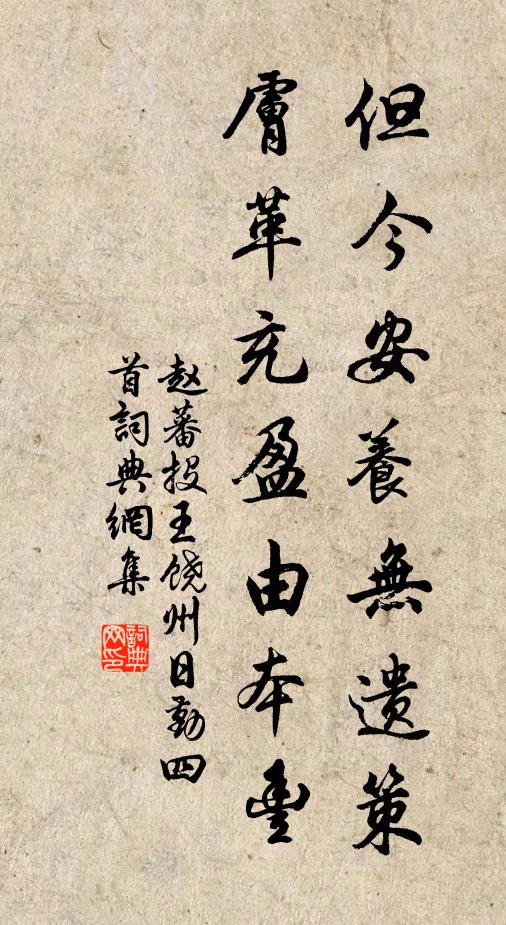 但今安養無遺策
膚革充盈由本豐
赵蕃投王饶州日勤四
首詞典網集
詞典网印